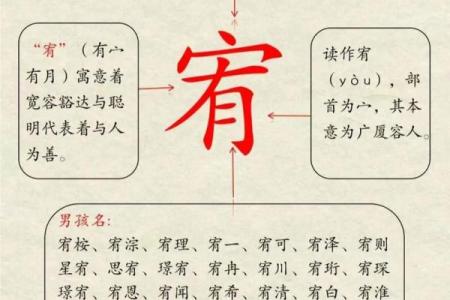 “宥”（有宀
有月）寓意着
宽容豁达与聪
明代表着与人
为善。
宥
读作宥
（yòu），部
首为宀，其本
意为广厦容人。
男孩名：
宥桉、宥淙、宥理、宥一、宥可、宥泽、宥则
星宥、思宥、璟宥、宥冉、宥川、宥珩、宥琛
璟宥、宥恩、宥闻、宥希、宥清、宥白、宥淮